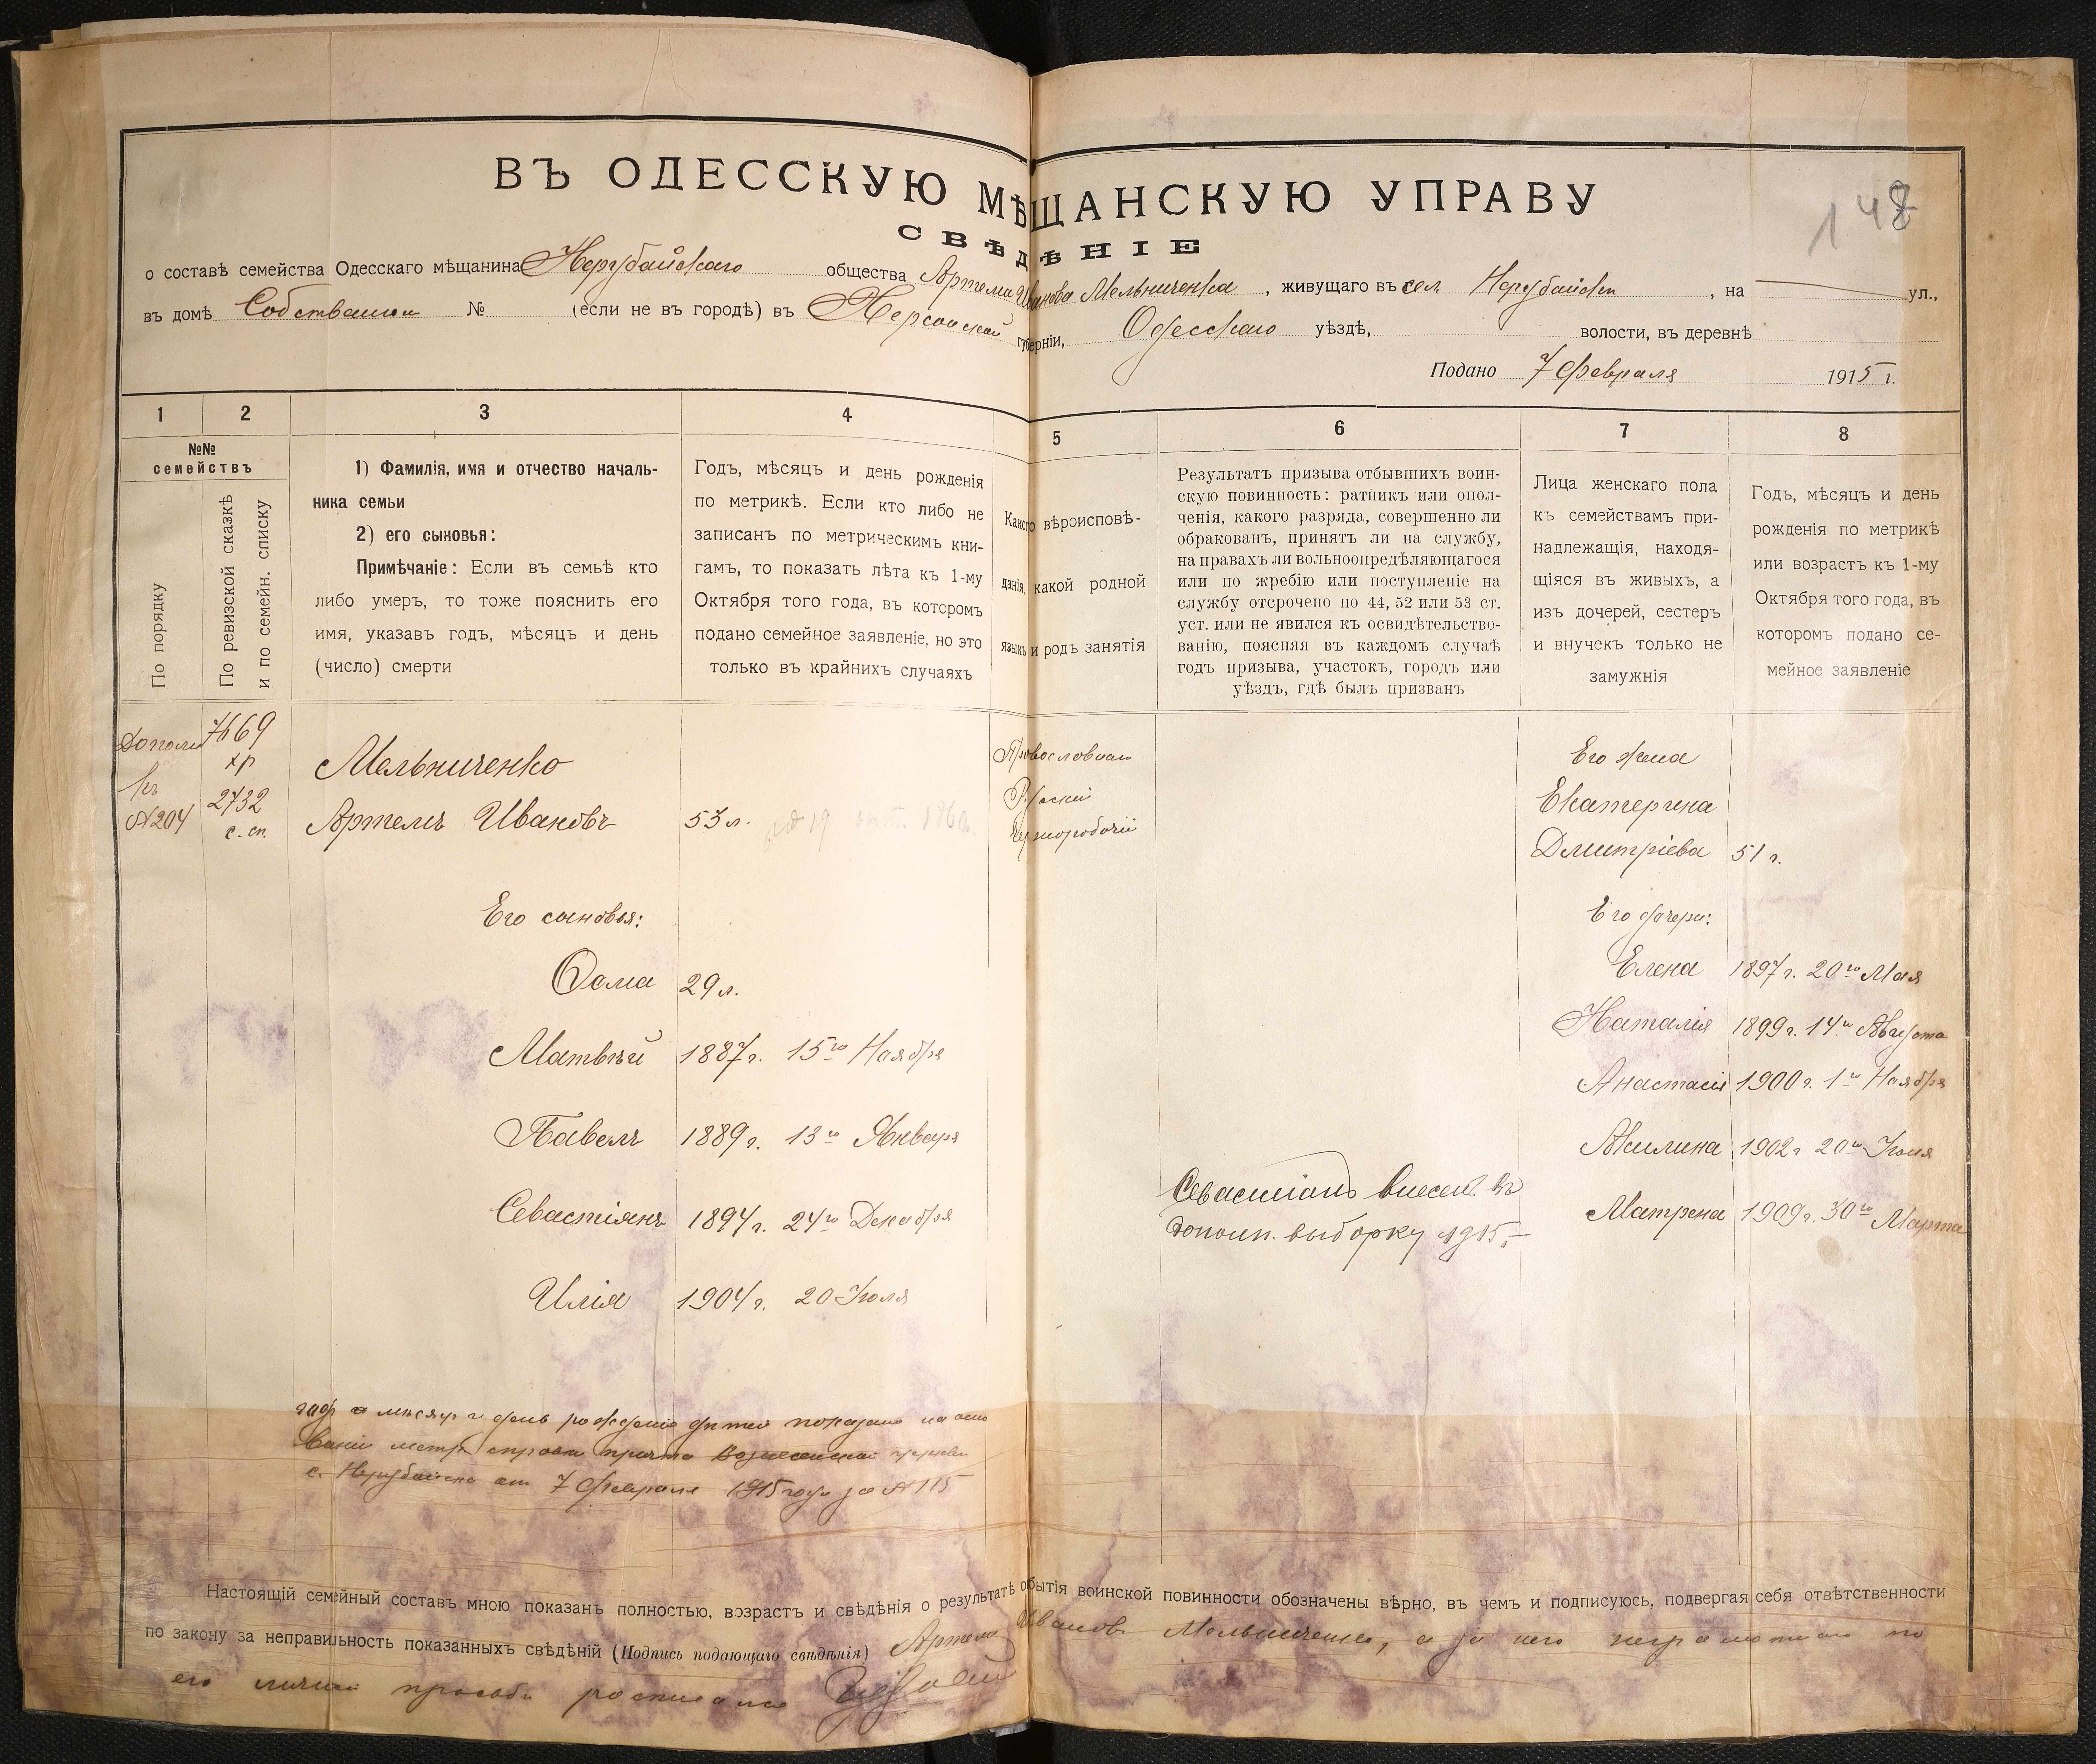 148
ВЪ ОДЕССКУЮ МѢЩАНСКУЮ УПРАВУ
СВѢДѢНІЕ
о составѣ семейства Одесскаго мѣщанина Нерубайскаго общества Артема Иванова Мельниченка, живущаго въ сел. Нерубайск, на — ул.,
въ домѣ Собственном № (если не въ городѣ) въ Херсонской губерніи, Одесскаго уѣздѣ, волости, въ деревнѣ
Подано 7 Февраля 1915 г.
1 2 3 4 5 6 7 8
№№ семействъ
По порядку
По ревизской сказкѣ и по семейн. списку
1) Фамилія, имя и отчество началь-
ника семьи
2) его сыновья:
Примѣчаніе: Если въ семьѣ кто
либо умеръ, то тоже пояснить его
имя, указавъ годъ, мѣсяцъ и день
(число) смерти
Годъ, мѣсяцъ и день рожденія
по метрикѣ. Если кто либо не
записанъ по метрическимъ кни-
гамъ, то показать лѣта къ 1-му
Октября того года, въ которомъ
подано семейное заявленіе, но это
только въ крайнихъ случаяхъ
Какого вѣроисповѣ-
данія, какой родной
языкъ и родъ занятія
Результатъ призыва отбывшихъ воин-
скую повинность: ратникъ или опол-
ченія, какого разряда, совершенно ли
обракованъ, принятъ ли на службу,
на правахъ ли вольноопредѣляющагося
или по жребію или поступленіе на
службу отсрочено по 44, 52 или 53 ст.
уст. или не явился къ освидѣтельство-
ванію, поясняя въ каждомъ случаѣ
годъ призыва, участокъ, городъ или
уѣздъ, гдѣ былъ призванъ
Лица женскаго пола
къ семействамъ при-
надлежащія, находя-
щіяся въ живыхъ, а
изъ дочерей, сестеръ
и внучекъ только не
замужнія
Годъ, мѣсяцъ и день
рожденія по метрикѣ
или возрастъ къ 1-му
Октября того года, въ
которомъ подано се-
мейное заявленіе
Дополн
къ
№204
хр
2732
с. сп.
Мельниченко
Артемъ Ивановъ 53 л.
Православная
Русскій
Чернорабочій
Его жена
Екатерина
Дмитріева 51 г.
Его сыновья:
Его дочери:
Фома 29 л.
Елена 1897 г. 20го Мая
Матвѣй 1887 г. 15го Ноября
Наталія 1899 г. 14го Августа
Анастасія 1900 г. 1го Ноября
Павелъ 1889 г. 13го Января
Акилина 1902 г. 20го Іюля
Севастіанъ 1894 г. 24го Декабря
Севастіанъ внесенъ въ
дополн. выборку 1915 г.
Матрена 1909 г. 30го Марта
Илія 1904 г. 20 Іюля
годъ мѣсяцъ и день рожденія дѣтей показано на осно
ваніи метр. справки причта Вознесенской церкви
с. Нерубайска от 7 Февраля 1915 года за №115
Настоящій семейный составъ мною показанъ полностью, возрастъ и свѣдѣнія о результатѣ отбытія воинской повинности обозначены вѣрно, въ чемъ и подписуюсь, подвергая себя отвѣтственности
по закону за неправильность показанныхъ свѣдѣній (Подпись подающаго свѣдѣнія) Артемъ Ивановъ Мельниченко, а за него неграмотнаго по
его личной просьбѣ росписался